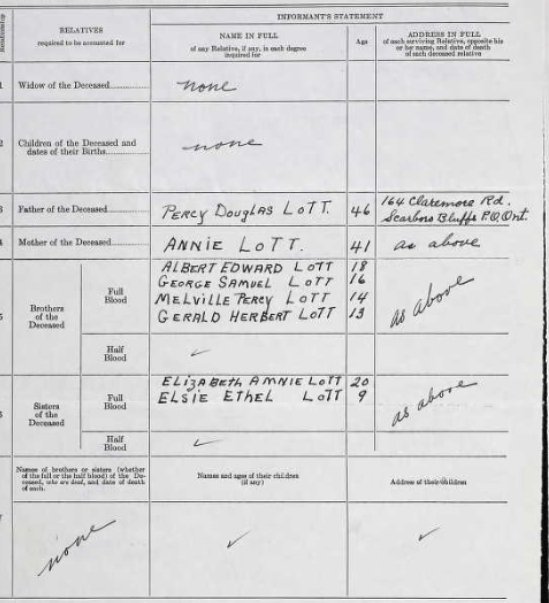 Relationship
RELATIVES
required to be accounted for
INFORMANT'S STATEMENT
NAME IN FULL
of any Relative, if any, in each degree
required for
Age
ADDRESS IN FULL
of each surviving Relative, opposite his
or her name, and date of death
of each deceased relative
1 Widow of the Deceased
none
2 Children of the Deceased and
dates of their Births
none
3 Father of the Deceased
PERCY DOUGLAS LOTT. 46
164 Claremore Rd.
Scarboro Bluffs P.O. Ont.
Mother of the Deceased
ANNIE LOTT. 41 as above
5 Brothers
of the
Deceased
Full
Blood
ALBERT EDWARD LOTT 18
GEORGE SAMUEL LOTT 16
MELVILLE PERCY LOTT 14
GERALD HERBERT LOTT 13
as above
Half
Blood
✓
Sisters
of the
Deceased
Full
Blood
ELIZABETH AMNIE LOTT 20
ELSIE ETHEL LOTT 9
as above
Half
Blood
✓
Names of brothers or sisters (whether
of the full or the half blood) of the De-
ceased, who are dead, and date of death
of each.
Names and ages of their children
(if any)
Address of their children
none
✓
✓